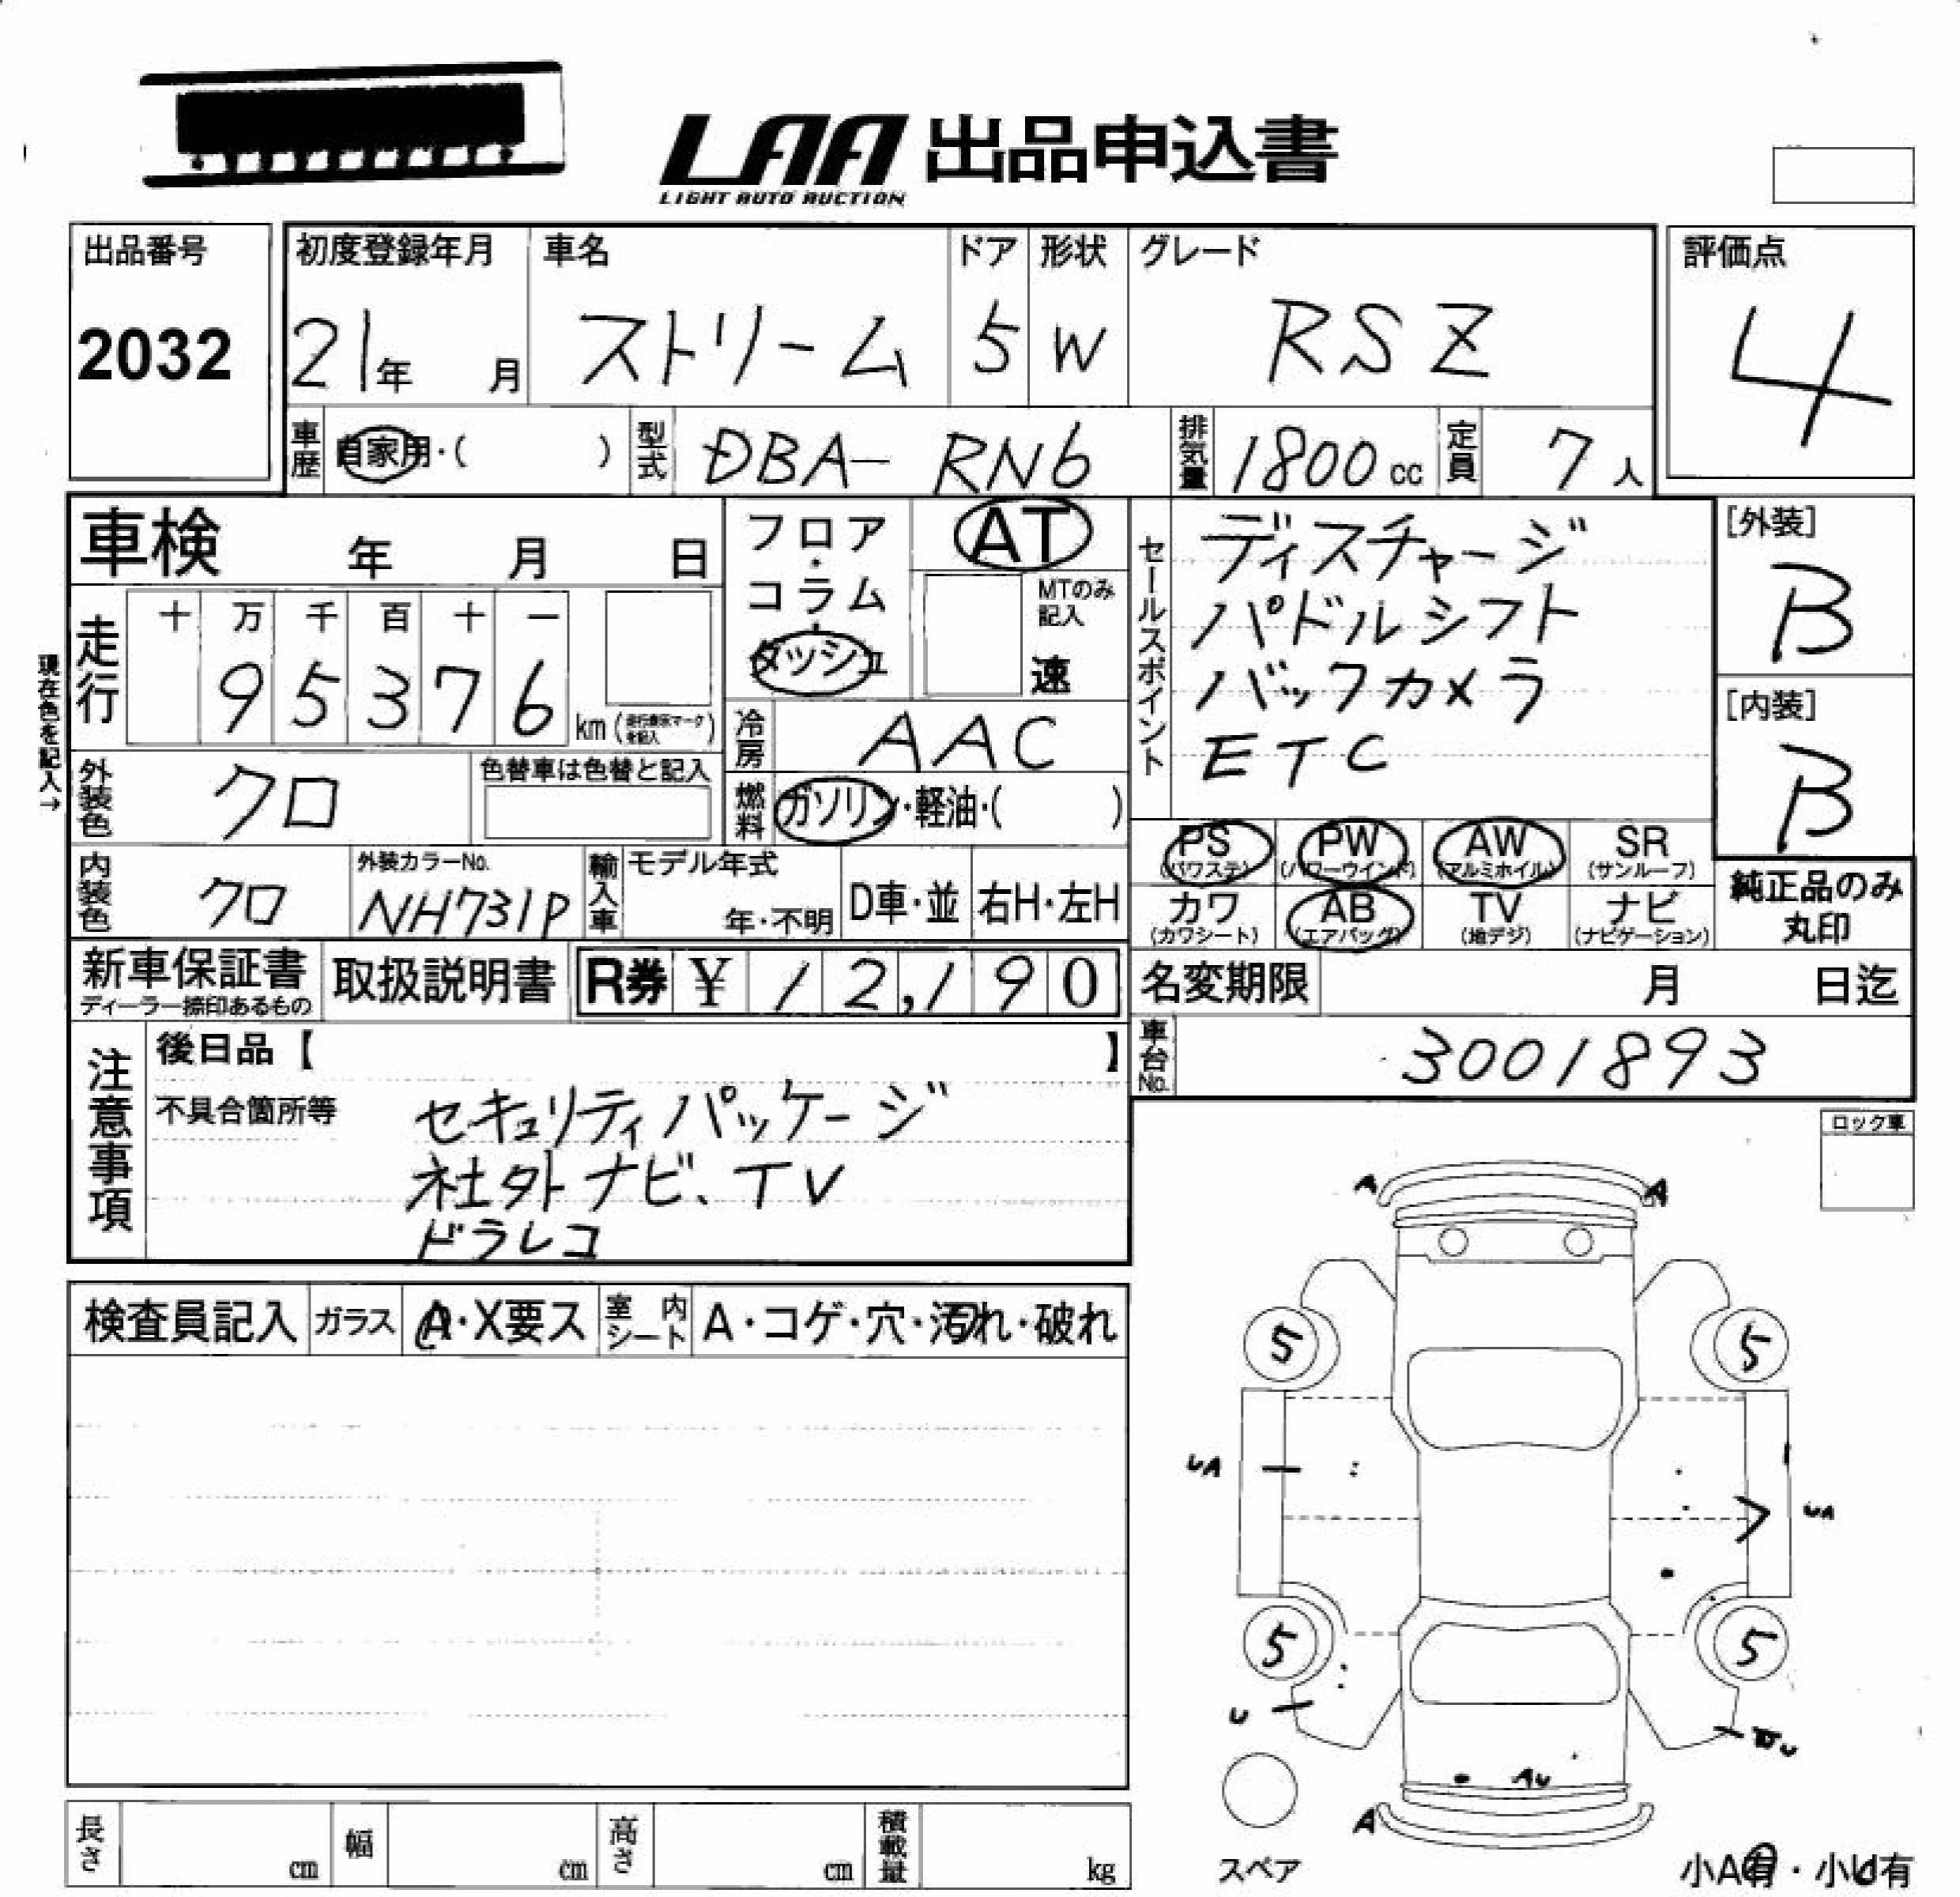 LAA 出品申込書
LIGHT AUTO AUCTION
出品番号
2032
初度登録年月 車名 ドア 形状 グレード
21年 月 ストリーム 5 W RSZ
評価点
4
車歴 自家用・( ) 型式 DBA- RN6 排気量 1800cc 定員 7人
車検 年 月 日
フロア・コラム・ダッシュ
AT
MTのみ記入
速
セールスポイント
ディスチャージ
パドルシフト
バックカメラ
ETC
[外装]
B
[内装]
B
現在色を記入→
走行 十 万 千 百 十 一
95376 km
冷房 AAC
外装色 クロ 色替車は色替と記入
燃料 ガソリン・軽油・( )
PS AW PW SR
(パワステ) (パワーウインド) (アルミホイル) (サンルーフ)
カワ AB TV ナビ
(カワシート) (エアバッグ) (地デジ) (ナビゲーション)
純正品のみ
丸印
内装色 クロ 外装カラーNo. NH731P 輸入車 モデル年式 年・不明 D車・並 右H・左H
新車保証書
ディーラー捺印あるもの
取扱説明書 R券 ¥12,190
名変期限 月 日迄
車台No. 3001893
注意事項
後日品【 】
不具合箇所等 セキュリティパッケージ
社外ナビ、TV
ドラレコ
ロック車
検査員記入 ガラス A・X要ス 室内シート A・コゲ・穴・汚れ・破れ
A A
5 5
UA UA
5 5
U
AU
A
スペア
小A有・小U有
長さ cm 幅 cm 高さ cm 積載量 kg